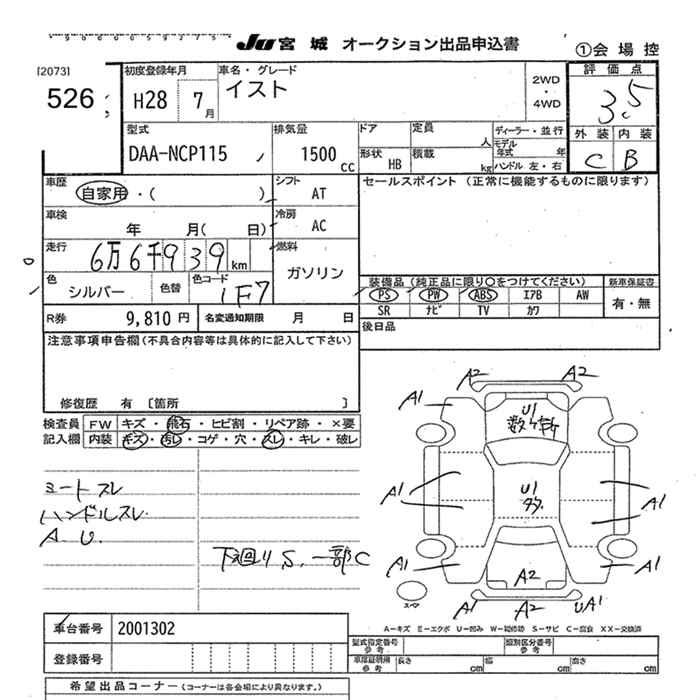 JU 宮城 オークション出品申込書
①会場控
[2073]
526
初度登録年月
H28 7 月
車名・グレード
イスト
2WD
・
4WD
評価点
3.5
外装 内装
C B
型式
DAA-NCP115
排気量
1500 CC
ドア
定員 人
形状 HB
積載 kg
ディーラー・並行
モデル年式 年
ハンドル 左・右
車歴
自家用・( )
シフト
AT
車検
年 月( 日)
冷房
AC
走行
6万6千939 km
燃料
ガソリン
色
シルバー
色替
色コード
1F7
セールスポイント (正常に機能するものに限ります)
装備品 (純正品に限り○をつけてください)
PS PW ABS エアB AW
SR ナビ TV カワ
新車保証書
有・無
R券
9,810 円
名変通知期限 月 日
後日品
注意事項申告欄(不具合内容等は具体的に記入して下さい)
修復歴 有 〔箇所 〕
検査員記入欄
FW キズ・飛石・ヒビ割・リペア跡・×要
内装 キズ・汚レ・コゲ・穴・スレ・キレ・破レ
シートスレ
ハンドルスレ
A U.
下廻り S. 一部C
A2 A2
A1 A1
U1
数ヶ所
A1 A1
U1
多
A1
A1
A1 A1
A2
A1 A2 UA1
スペア
A−キズ E−エクボ U−凹み W−補修跡 S−サビ C−腐食 XX−交換済
車台番号 2001302
登録番号
型式指定番号 参考
類別区分番号 参考
車庫証明用 参考
長さ cm 幅 cm 高さ cm
希望出品コーナー (コーナーは各会場により異なります。)